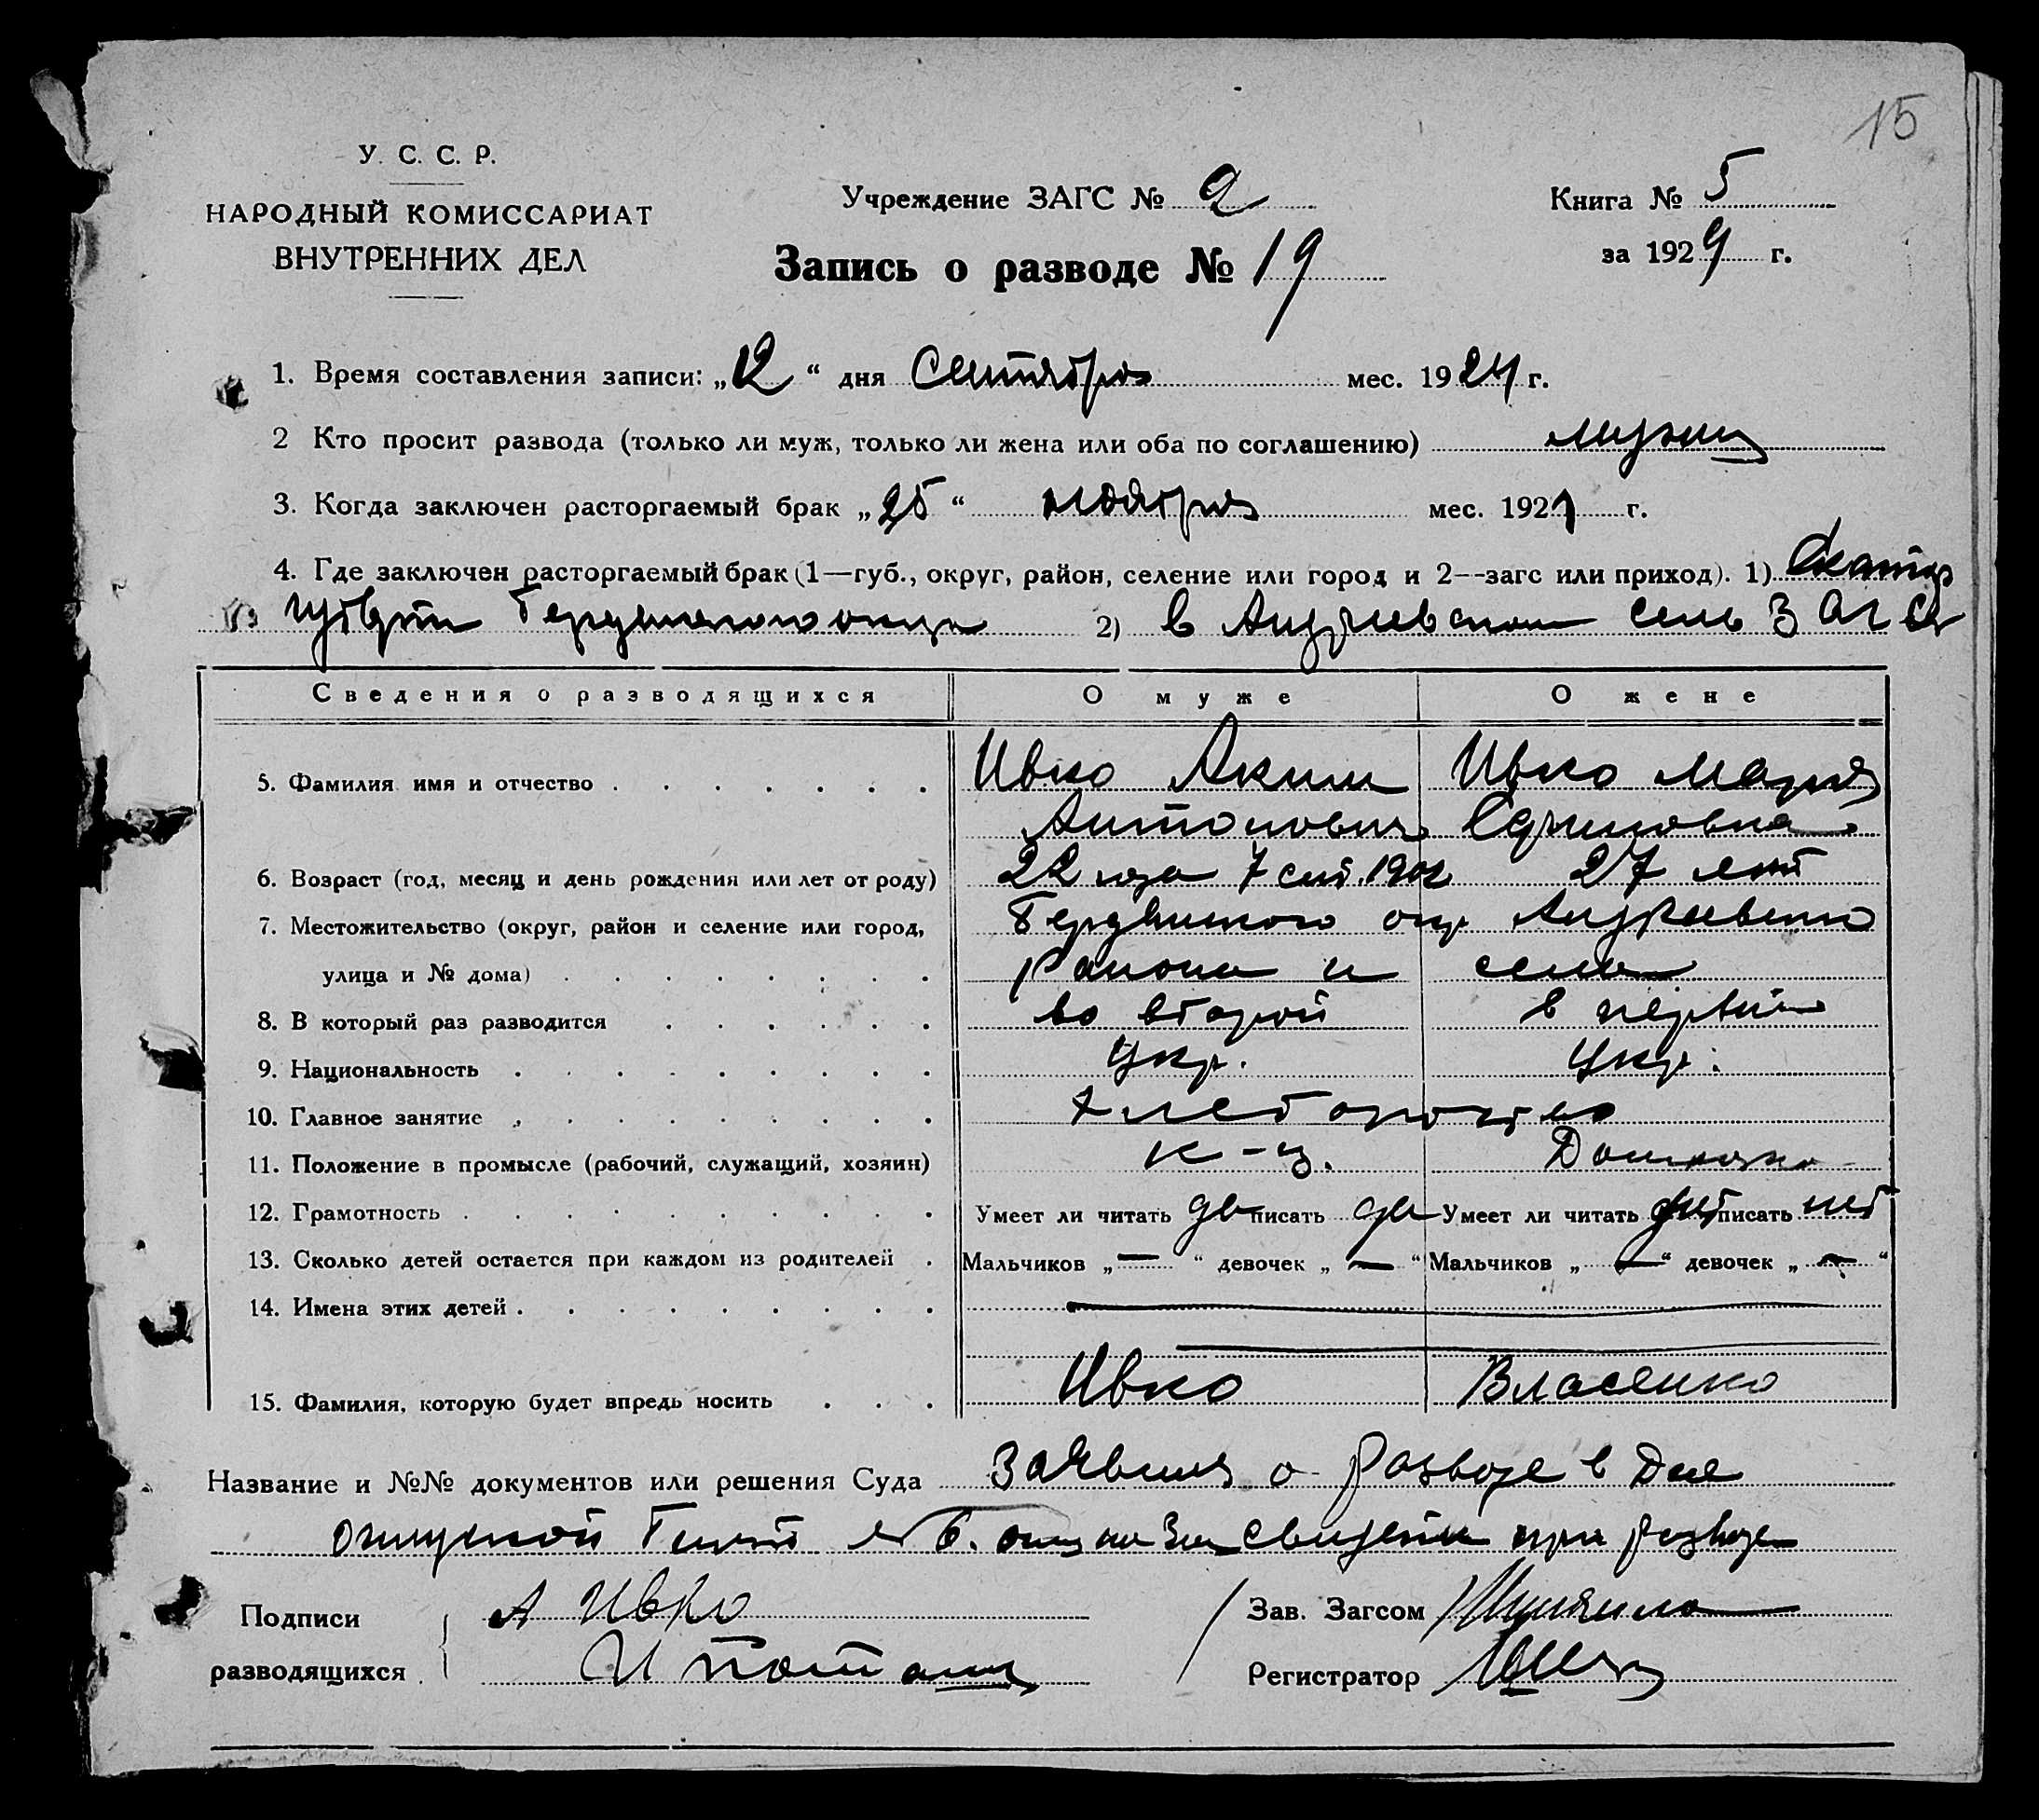 15
У. С. С. Р.
НАРОДНЫЙ КОМИССАРИАТ
ВНУТРЕННИХ ДЕЛ
Учреждение ЗАГС № 2
Запись о разводе № 19
Книга № 5
за 1924 г.
1. Время составления записи: „12“ дня Сентября мес. 1924 г.
2 Кто просит развода (только ли муж, только ли жена или оба по соглашению)
3. Когда заключен расторгаемый брак „25“ ноября мес. 1921 г.
4. Где заключен расторгаемый брак (1—губ., округ, район, селение или город и 2—загс или приход). 1) Екатер
2) в Андреевском сель ЗАГСе
Сведения о разводящихся О муже О жене
5. Фамилия имя и отчество Ивко Аким Ивко Мария
Антонович
6. Возраст (год, месяц и день рождения или лет от роду) 22 года 7 сент. 1902 27 лет
7. Местожительство (округ, район и селение или город, Бердянского окр Андреевского
улица и № дома) района и села
8. В который раз разводится во второй в первый
9. Национальность Укр. Укр.
10. Главное занятие хлеборобство
11. Положение в промысле (рабочий, служащий, хозяин) к-ц.
12. Грамотность Умеет ли читать да писать да Умеет ли читать нет писать нет
13. Сколько детей остается при каждом из родителей Мальчиков „—“ девочек „—“ Мальчиков „—“ девочек „—“
14. Имена этих детей
15. Фамилия, которую будет впредь носить Ивко Власенко
Название и №№ документов или решения Суда о разводе в
при разводе
Подписи А Ивко Зав. Загсом
разводящихся Регистратор